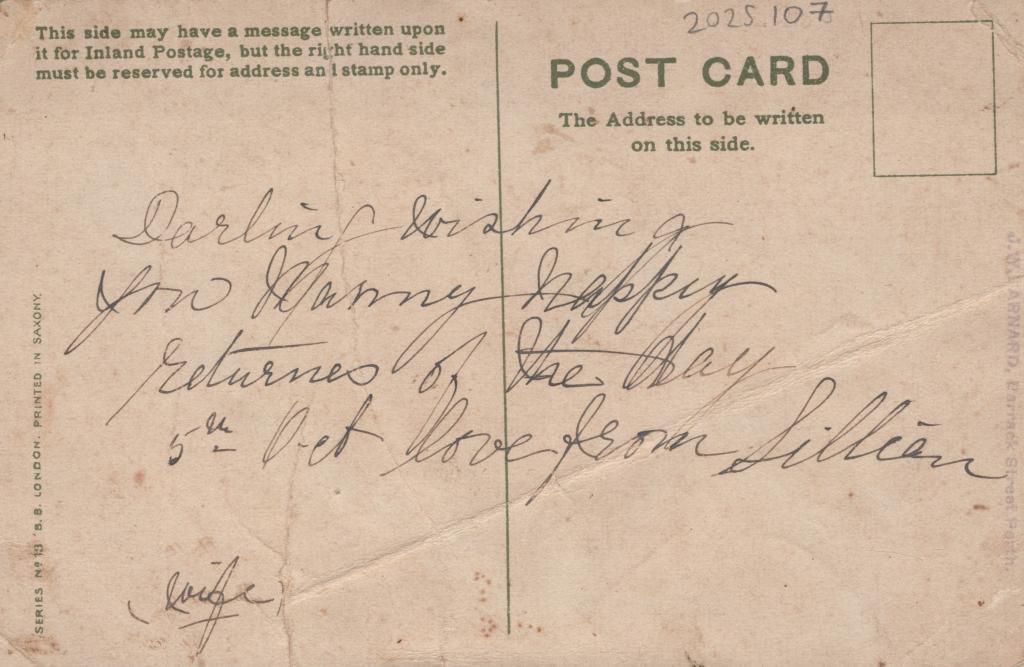 2025.107
This side may have a message written upon
it for Inland Postage, but the right hand side
must be reserved for address and stamp only.
POST CARD
The Address to be written
on this side.
Darling wishing
you Manny happey
returnes of the day
5th Oct love from Lillian
(wife)
SERIES No 13 B.B. LONDON. PRINTED IN SAXONY.
J.W. BARNARD, Barrack Street Perth